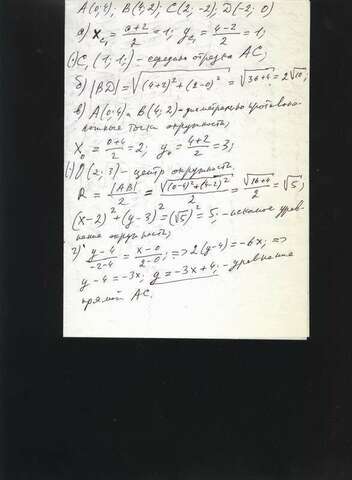 A(0;4); B(4;2); C(2;-2); D(-2;0)
а) x_{C_1} = \frac{0+2}{2} = 1; y_{C_1} = \frac{4-2}{2} = 1;
(·)C_1 (1; 1;) - середина отрезка AC;
б) |BD| = \sqrt{(4+2)^2 + (2-0)^2} = \sqrt{36+4} = 2\sqrt{10};
в) A(0;4) и B(4;2) - диаметрально противопо-
ложные точки окружности;
X_0 = \frac{0+4}{2} = 2; y_0 = \frac{4+2}{2} = 3;
(·)O(2; 3) - центр окружности;
R = \frac{|AB|}{2} = \frac{\sqrt{(0-4)^2+(4-2)^2}}{2} = \frac{\sqrt{16+4}}{2} = \sqrt{5};
(x-2)^2 + (y-3)^2 = (\sqrt{5})^2 = 5; - искомое урав-
нение окружности;
г) \frac{y-4}{-2-4} = \frac{x-0}{2-0}; => 2(y-4) = -6x; =>
y-4 = -3x; y = -3x+4; - уравнение
прямой AC.